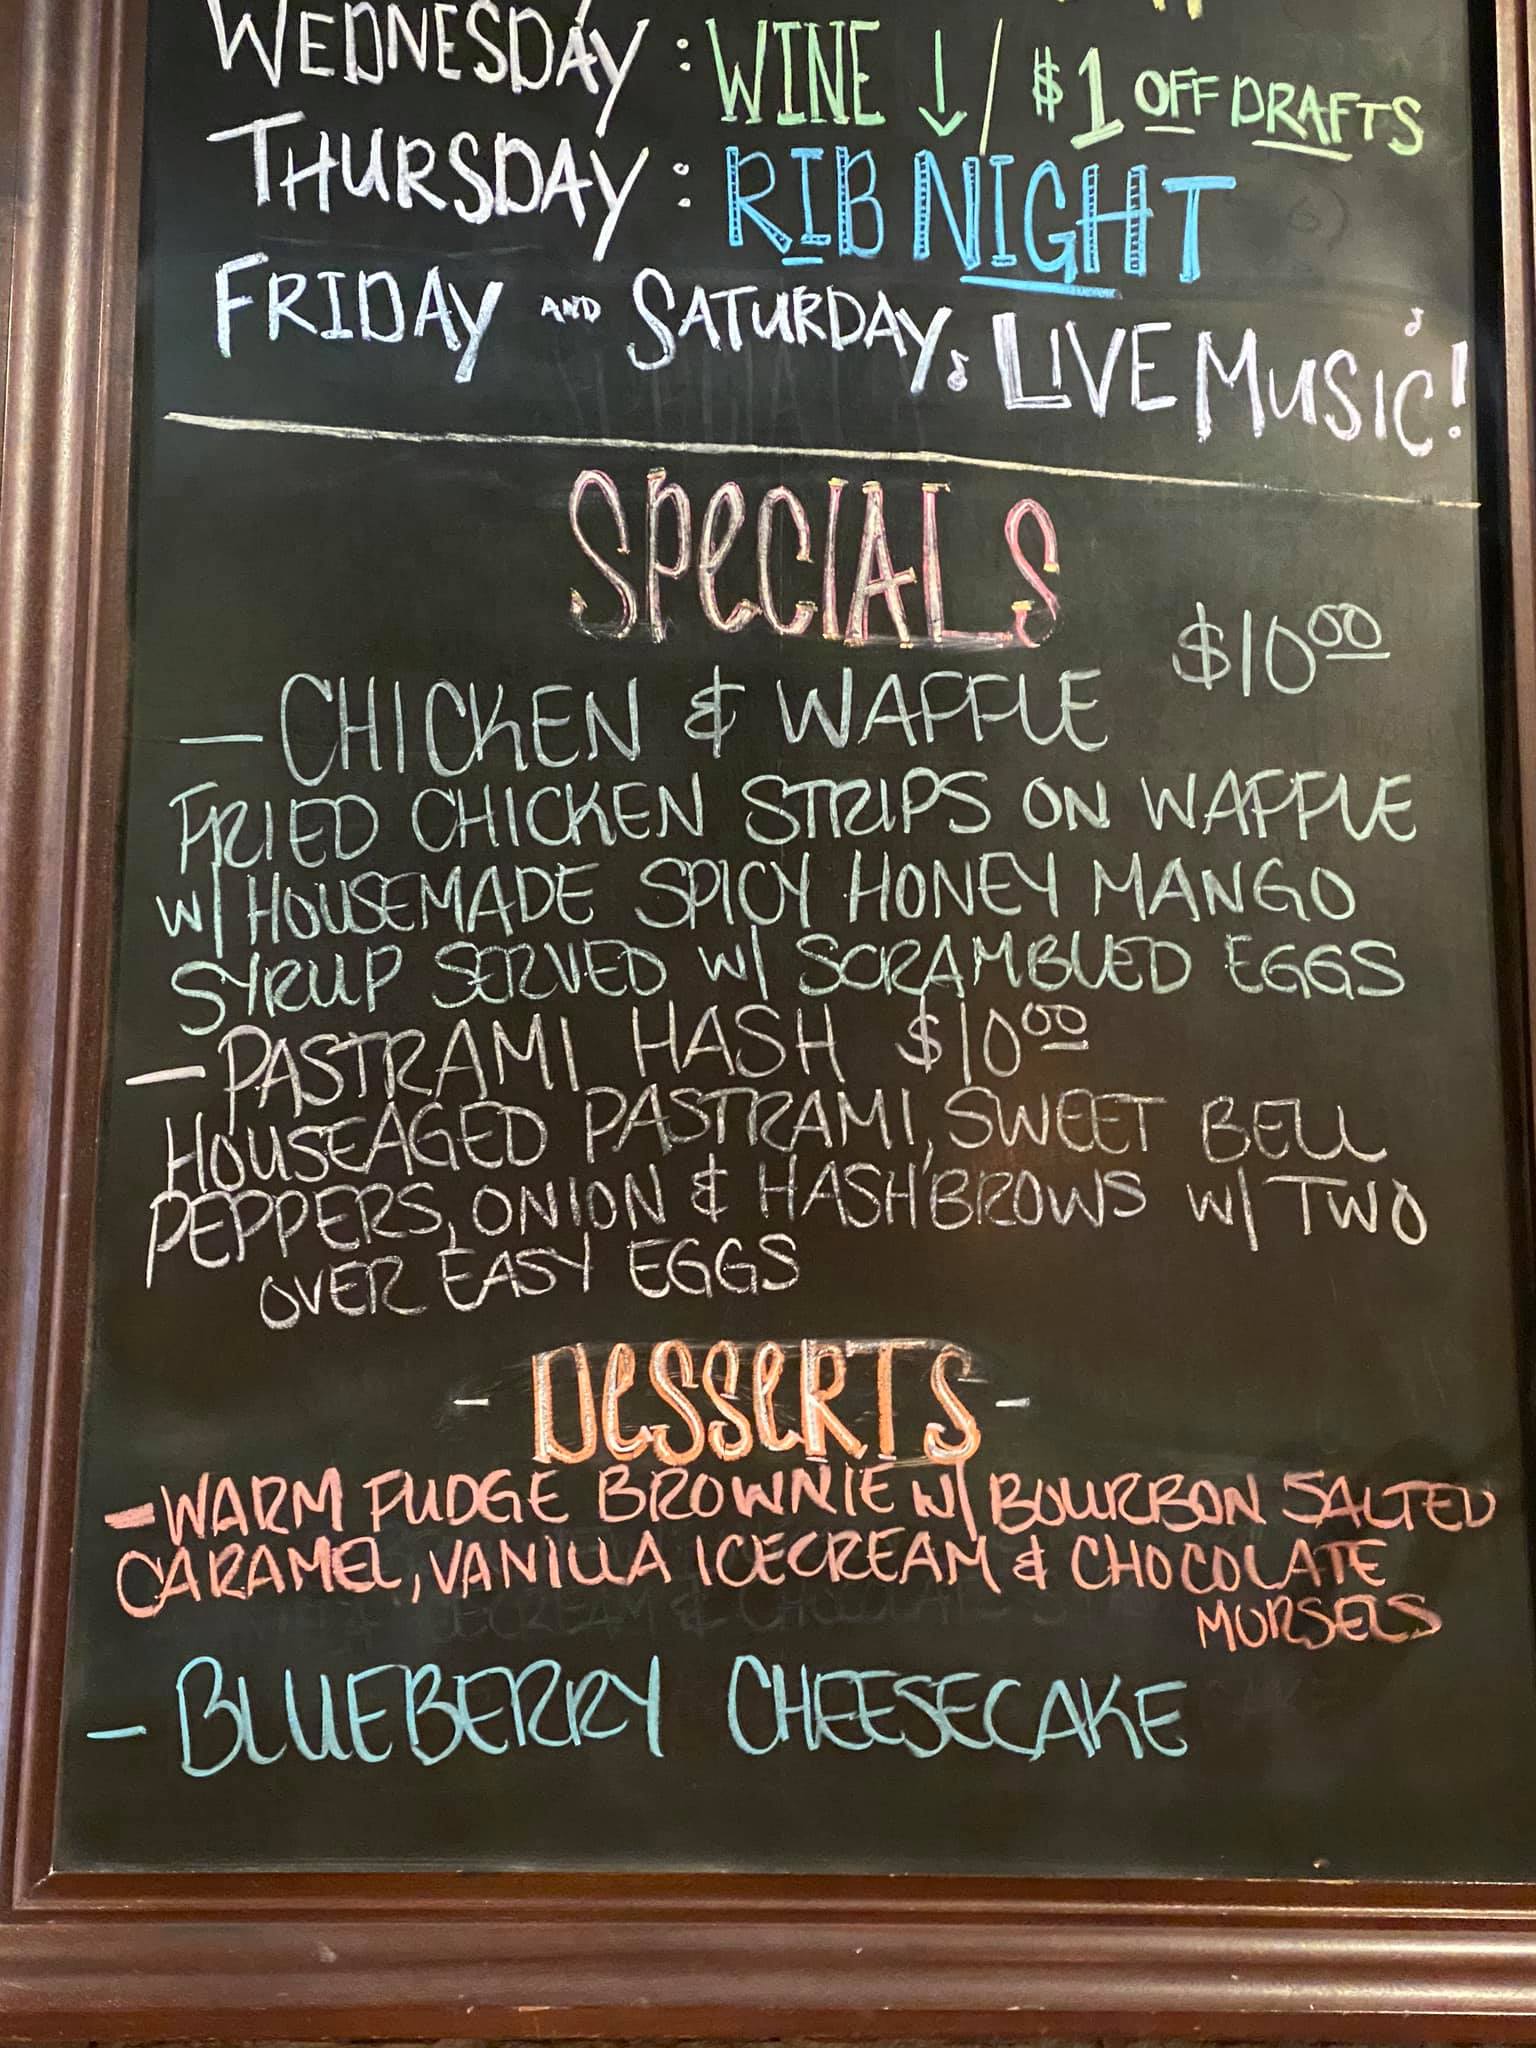 WEDNESDAY : WINE ↓ / $1 OFF DRAFTS
THURSDAY : RIB NIGHT
FRIDAY AND SATURDAY ♪ LIVE MUSIC!
SPeCIALS
— CHICKEN & WAFFLE $10.00
FRIED CHICKEN STRIPS ON WAFFLE
W/ HOUSEMADE SPICY HONEY MANGO
SYRUP SERVED W/ SCRAMBLED EGGS
— PASTRAMI HASH $10.00
HOUSEAGED PASTRAMI, SWEET BELL
PEPPERS, ONION & HASHBROWS W/ TWO
OVER EASY EGGS
- DeSSeRTS -
- WARM FUDGE BROWNIE W/ BOURBON SALTED
CARAMEL, VANILLA ICECREAM & CHOCOLATE
MORSELS
- BLUEBERRY CHEESECAKE